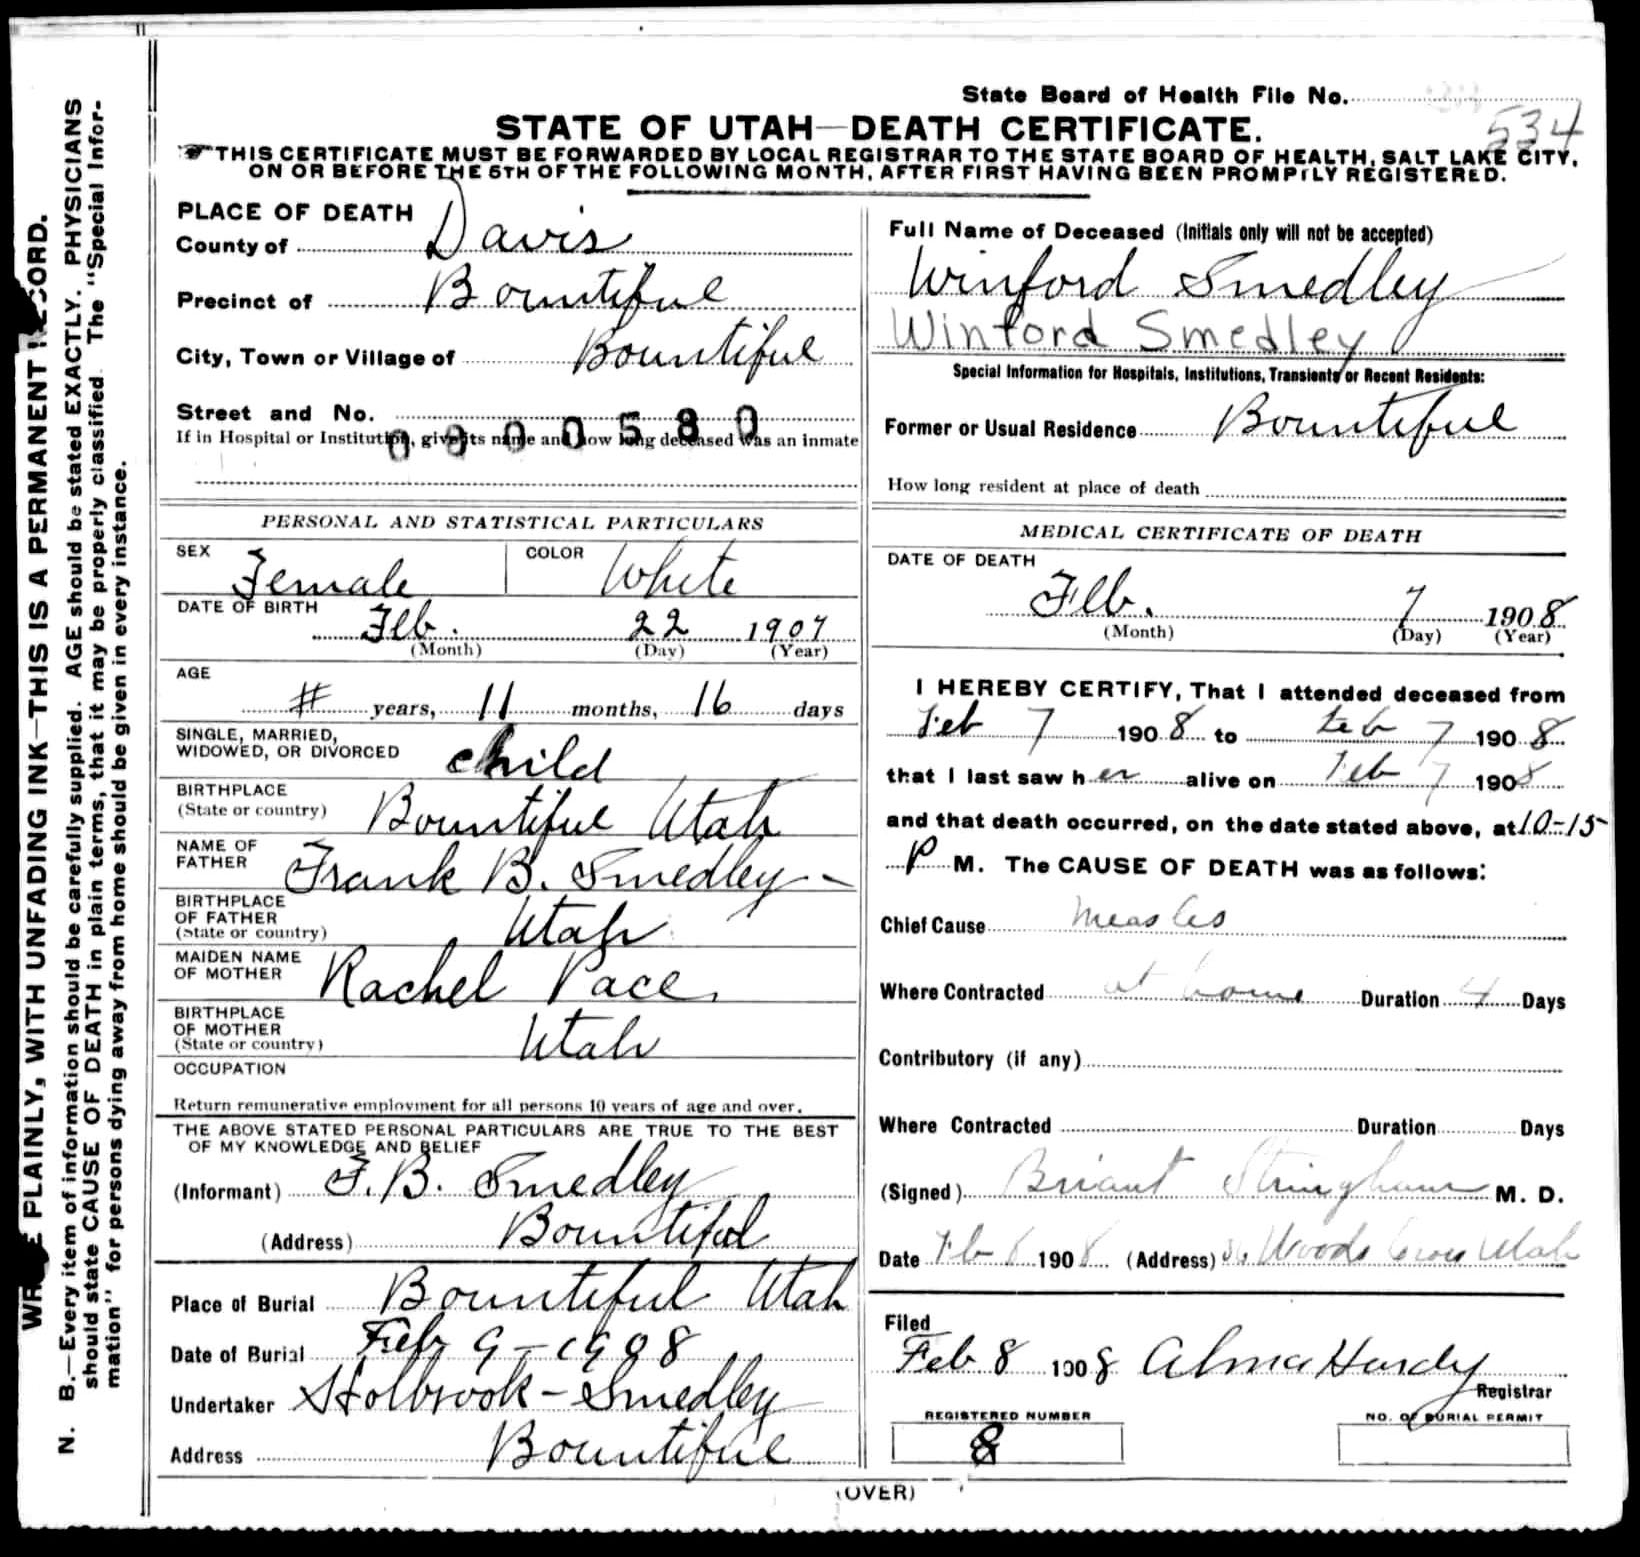 State Board of Health File No.
534
STATE OF UTAH—DEATH CERTIFICATE.
THIS CERTIFICATE MUST BE FORWARDED BY LOCAL REGISTRAR TO THE STATE BOARD OF HEALTH, SALT LAKE CITY,
ON OR BEFORE THE 5TH OF THE FOLLOWING MONTH, AFTER FIRST HAVING BEEN PROMPTLY REGISTERED.
WRITE PLAINLY, WITH UNFADING INK—THIS IS A PERMANENT RECORD.
N. B.—Every item of information should be carefully supplied. AGE should be stated EXACTLY. PHYSICIANS
should state CAUSE OF DEATH in plain terms, that it may be properly classified. The "Special Infor-
mation" for persons dying away from home should be given in every instance.
PLACE OF DEATH
County of Davis
Precinct of Bountiful
City, Town or Village of Bountiful
Street and No.
0000580
If in Hospital or Institution, give its name and how long deceased was an inmate
PERSONAL AND STATISTICAL PARTICULARS
SEX Female COLOR White
DATE OF BIRTH
Feb. 22 1907
(Month) (Day) (Year)
AGE
# years, 11 months, 16 days
SINGLE, MARRIED,
WIDOWED, OR DIVORCED child
BIRTHPLACE
(State or country) Bountiful Utah
NAME OF
FATHER Frank B. Smedley
BIRTHPLACE
OF FATHER
(State or country) Utah
MAIDEN NAME
OF MOTHER Rachel Pace
BIRTHPLACE
OF MOTHER
(State or country) Utah
OCCUPATION
Return remunerative employment for all persons 10 years of age and over.
THE ABOVE STATED PERSONAL PARTICULARS ARE TRUE TO THE BEST
OF MY KNOWLEDGE AND BELIEF
(Informant) F. B. Smedley
(Address) Bountiful
Place of Burial Bountiful Utah
Date of Burial Feb 9-1908
Undertaker Holbrook-Smedley
Address Bountiful
Full Name of Deceased (Initials only will not be accepted)
Winford Smedley
Winford Smedley
Special Information for Hospitals, Institutions, Transients or Recent Residents:
Former or Usual Residence Bountiful
How long resident at place of death
MEDICAL CERTIFICATE OF DEATH
DATE OF DEATH
Feb. 7 1908
(Month) (Day) (Year)
I HEREBY CERTIFY, That I attended deceased from
Feb 7 1908 to Feb 7 1908
that I last saw her alive on Feb 7 1908
and that death occurred, on the date stated above, at 10-15
P M. The CAUSE OF DEATH was as follows:
Chief Cause Measles
Where Contracted at home Duration 4 Days
Contributory (if any)
Where Contracted Duration Days
(Signed) Briant Stringham M. D.
Date Feb 8 1908 (Address) Woods Cross Utah
Filed
Feb 8 1908 Alma Hardy
Registrar
REGISTERED NUMBER
8
NO. OF BURIAL PERMIT
(OVER)